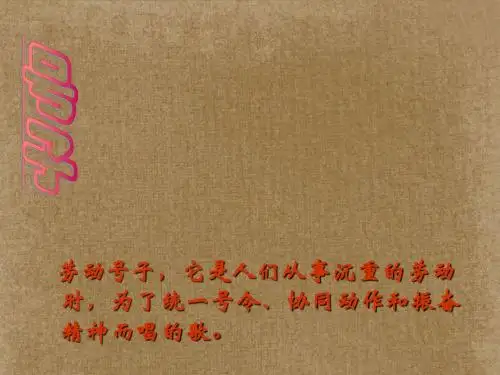 劳动号子，它是人们从事沉重的劳动
时，为了统一号令、协同动作和振奋
精神而唱的歌。